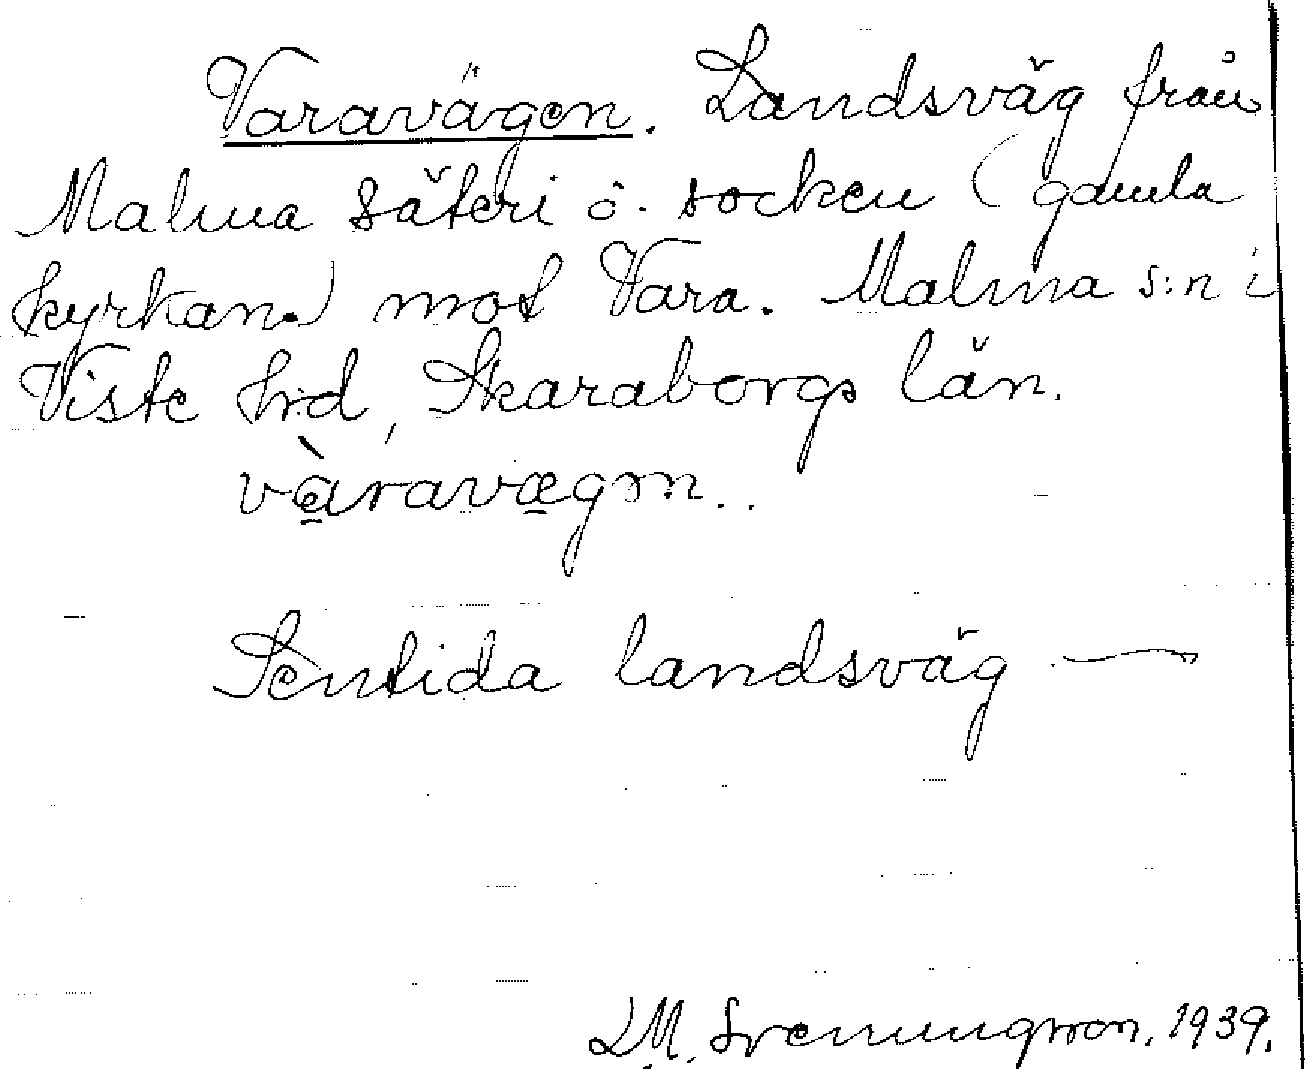 Varavägen. Landsväg från
Malma säteri o. socken (gamla
kyrkan.) mot Vara. Malma s:n i
Viste hrd, Skaraborgs län.
vàravægən.
Sentida landsväg —
L.M. Svenungsson. 1939.